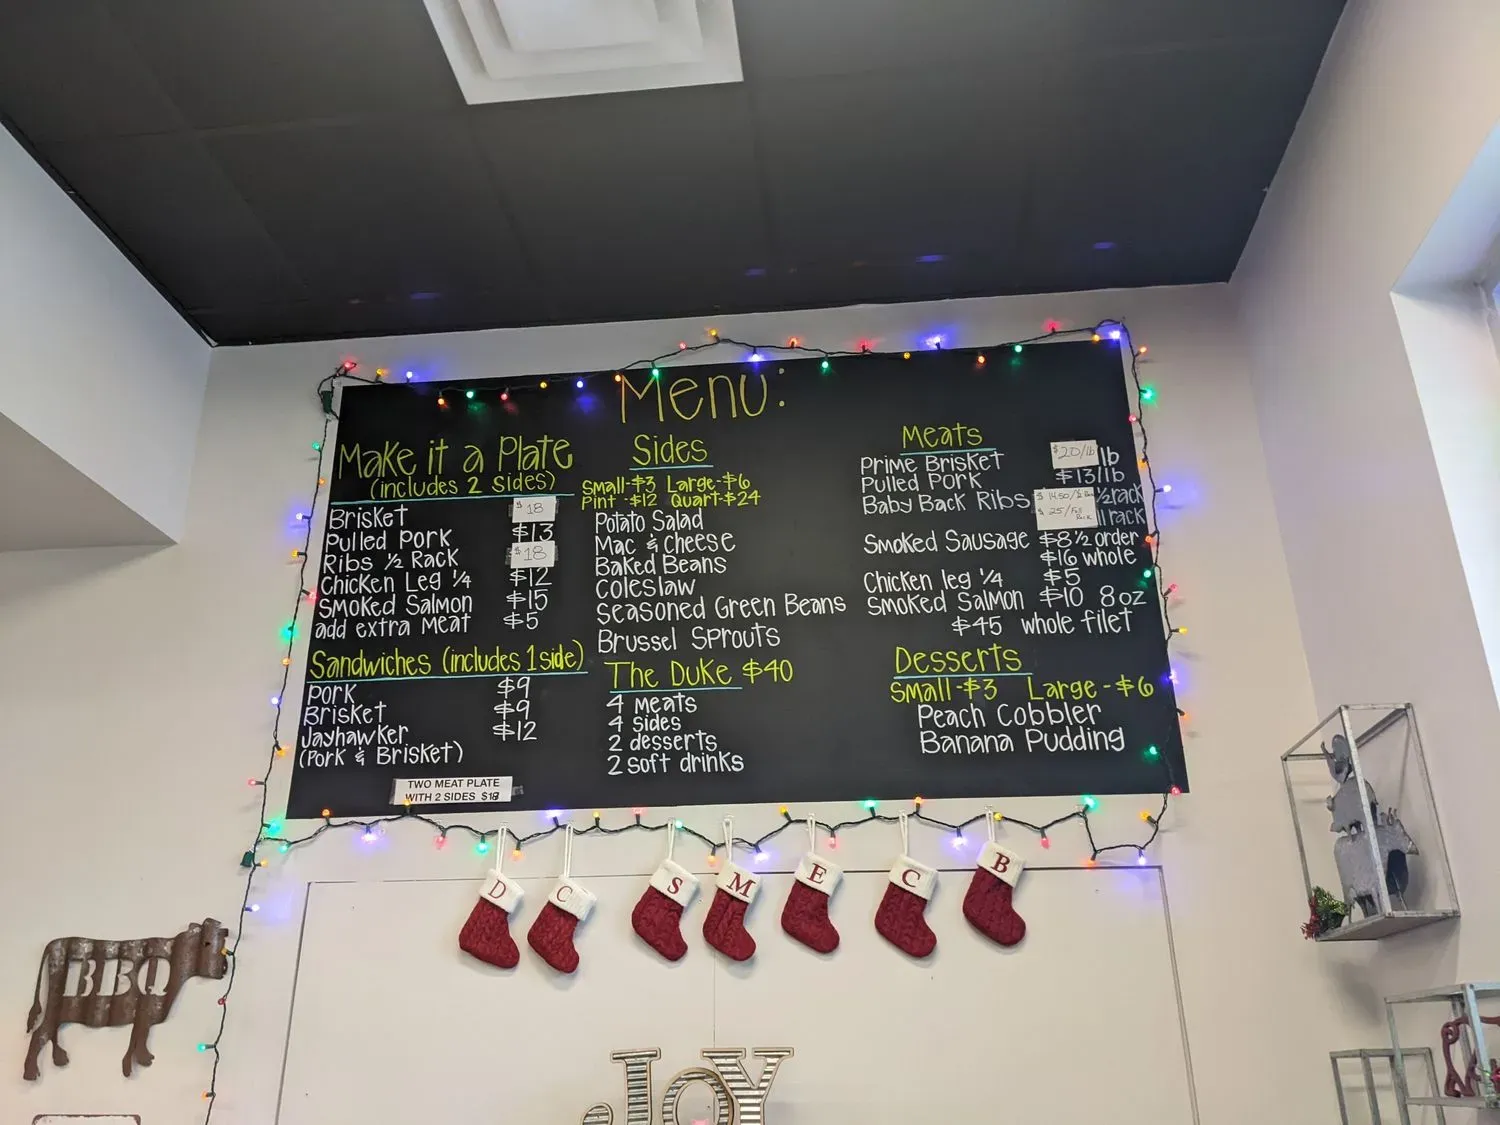 Menu:
Make it a Plate
(includes 2 sides)
Brisket $18
Pulled Pork $13
Ribs ½ Rack $18
Chicken Leg ¼ $12
Smoked Salmon $15
add extra meat $5
Sandwiches (includes 1 side)
Pork $9
Brisket $9
Jayhawker $12
(Pork & Brisket)
TWO MEAT PLATE
WITH 2 SIDES $18
Sides
Small-$3 Large-$6
Pint-$12 Quart-$24
Potato Salad
Mac & Cheese
Baked Beans
Coleslaw
Seasoned Green Beans
Brussel Sprouts
The Duke $40
4 meats
4 sides
2 desserts
2 soft drinks
Meats
Prime Brisket $20/lb lb
Pulled Pork $13/lb
Baby Back Ribs $14.50/½ Rack ½ rack
$25/Full Rack rack
Smoked Sausage $8 ½ order
$16 whole
Chicken leg ¼ $5
Smoked Salmon $10 8oz
$45 whole filet
Desserts
Small-$3 Large-$6
Peach Cobbler
Banana Pudding
D C S M E C B
BBQ
JOY